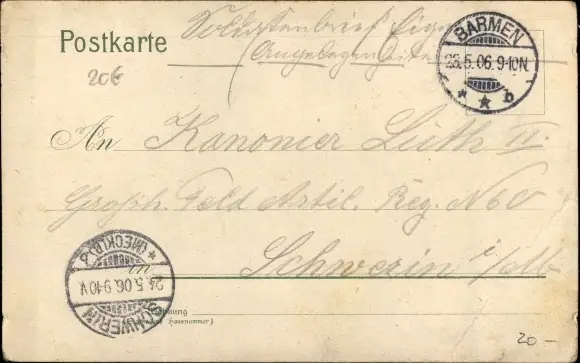 Postkarte
Soldatenbrief Eigene
(Angelegenheiten
BARMEN
23.5.06.9-10N.
* * b
20€
An Kanonier Lüth II
Großh. Feld Artil. Reg. N 60
in Schwerin i/M
SCHWERIN (MECKLB) 3 *
24.5.06.9-10V.
Wohnung
Hausnummer)
20-